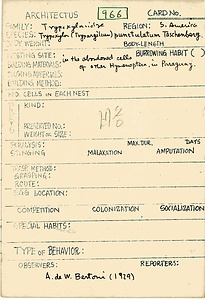 ARCHITECTUS 966 CARD No.
FAMILY: Trypoxylonidae REGION: S. America
SPECIES: Trypoxylon (Trypargilum) punctulatum Taschenberg
BODY WEIGHT: BODY LENGTH
NESTING SITE: in the abandoned cells BURROWING HABIT ( )
BUILDING MATERIALS: of other Hymenoptera, in Paraguay.
BUILDING METHOD:
NO. CELLS IN EACH NEST
KIND:
PRESERVED No.:
WEIGHT or SIZE:
PARALYSIS: MAX. DUR. DAYS
STINGING MALAXATION AMPUTATION
METHOD:
GRASPING:
ROUTE:
EGG LOCATION:
COMPETITION COLONIZATION SOCIALIZATION
SPECIAL HABITS:
TYPE OF BEHAVIOR:
OBSERVERS: REPORTERS:
A. de W. Bertoni (1929)